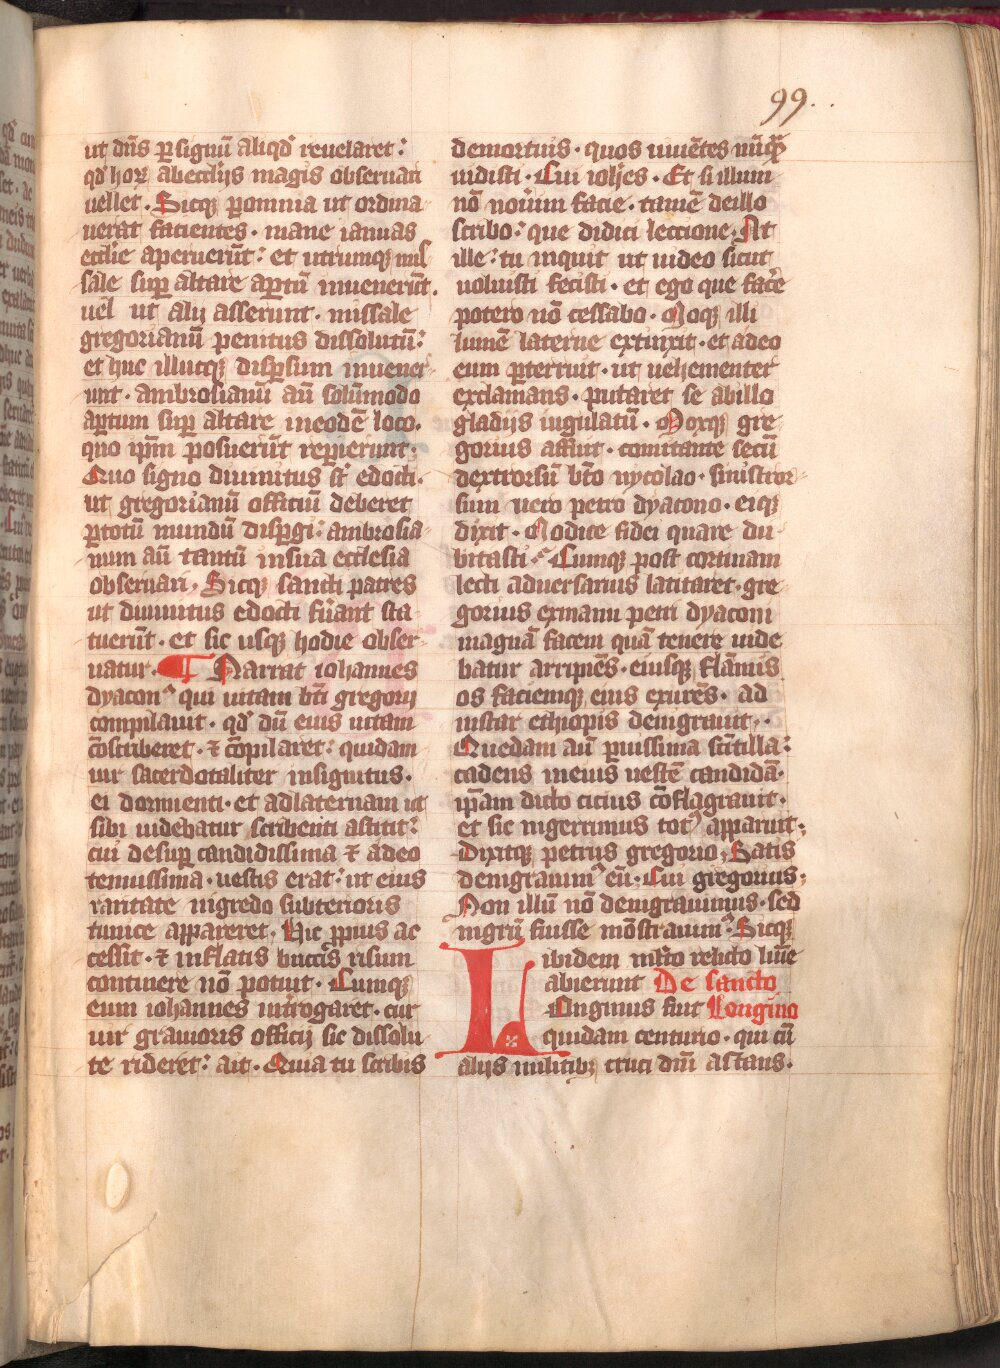 99.
ut dn̄s ꝑ signū aliqd̾ reuelaret:
qd̾ hoꝝ ab eccl̓ijs magis obseruari
uellet. Sicqꝫ ꝑ omnia ut ordina
uerat facientes. mane ianuas
eccl̓ie aperuerūt: et utrumqꝫ mis
sale suꝑ altare aꝑtū inuenerūt.
uel ut alij asserunt. missale
gregorianū penitus dissolutū:
et huc illucqꝫ disꝑsum inuener
unt. ambrosianū aū solūmodo
aꝑtum suꝑ altare in eodē loco.
quo ip̄m posuerūt reꝑierunt.
Quo signo diuinitus st̄ edocti.
ut gregorianū officiū deberet
ꝑ totū mundū disꝑgi: ambrosia
num aū tantū in sua ecclesia
obseruari. Sicqꝫ sancti patres
ut diuinitus edocti fūant sta
tuerūt. et sic usqꝫ hodie obser
uatur. ¶ Narrat iohannes
dyacon᾽ qui uitam bt̄i gregorij
compilauit. qd̾ dū eius uitam
cōscriberet. ⁊ cōpilaret: quidam
uir sacerdotaliter insignitus.
ei dormienti. et ad laternam ut
sibi uidebatur scribenti astitit:
cui desuꝑ candidissima ⁊ adeo
tenuissima. uestis erat: ut eius
raritate nigredo subterioris
tunice appareret. Hic ꝓpius ac
cessit. ⁊ inflatis buccis risum
continere nō potuit. Cumqꝫ
eum iohannes int̓rogaret. cur
uir grauioris officij sic dissolu
te rideret: ait. Quia tu scribis
de mortuis. quos uiuētes nūqᷓ
uidisti. Cui ioh̄es. Et si illum
nō nouim facie. tamē de illo
scribo: que didici leccione. At
ille: tu inquit ut uideo sicut
uoluisti fecisti. et ego que fac̓e
potero nō cessabo. Moxqꝫ illi
lumē laterne extinxit. et adeo
eum ꝑterruit. ut uehementer
exclamans. putaret se ab illo
gladijs iugulatū. Moxqꝫ gre
gorius affuit. comitante secū
dextrorsū bt̄o nycolao. sinistror
sum uero petro dyacono. eiqꝫ
dixit. Modice fidei quare du
bitasti. Cumqꝫ post cortinam
lecti aduersarius latitaret. gre
gorius ex manu petri dyaconi
magnā facem quā tenere uide
batur arripiēs. eiusqꝫ flāmis
os faciemqꝫ eius exurēs. ad
instar ethiopis denigrauit.
Quedam aū ꝑuissima sc̄tilla:
cadens in eius uestē candidā.
ip̄am dicto cicius cōflagrauit.
et sic nigerrimus tot᾽ apparuit.
Dixitqꝫ petrus gregorio, Satis
denigrauim᾽ eū. Cui gregorius.
Non illū nō denigrauimus. sed
nigrū fuisse mōstrauim᾽. Sicqꝫ
ibidem mlt̓o relicto lu̅ie
abierunt De sancto
Longinus fuit Longino
quidam centurio. qui cū
alijs militibꝫ cruci dn̄i astans.